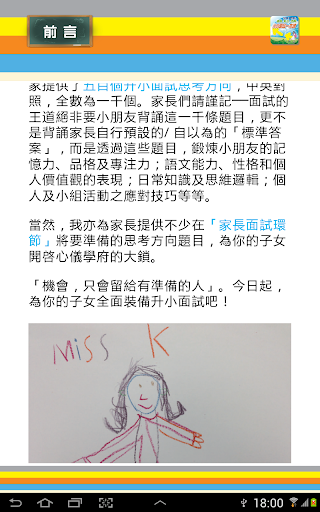 前言
家提供了五百個升小面試思考方向，中英對
照，全數為一千個。家長們請謹記──面試的
王道絕非要小朋友背誦這一千條題目，更不
是背誦家長自行預設的/ 自以為的「標準答
案」，而是透過這些題目，鍛煉小朋友的記
憶力、品格及專注力；語文能力、性格和個
人價值觀的表現；日常知識及思維邏輯；個
人及小組活動之應對技巧等等。
當然，我亦為家長提供不少在「家長面試環
節」將要準備的思考方向題目，為你的子女
開啓心儀學府的大鎖。
「機會，只會留給有準備的人」。今日起，
為你的子女全面裝備升小面試吧！
Miss K
18:00